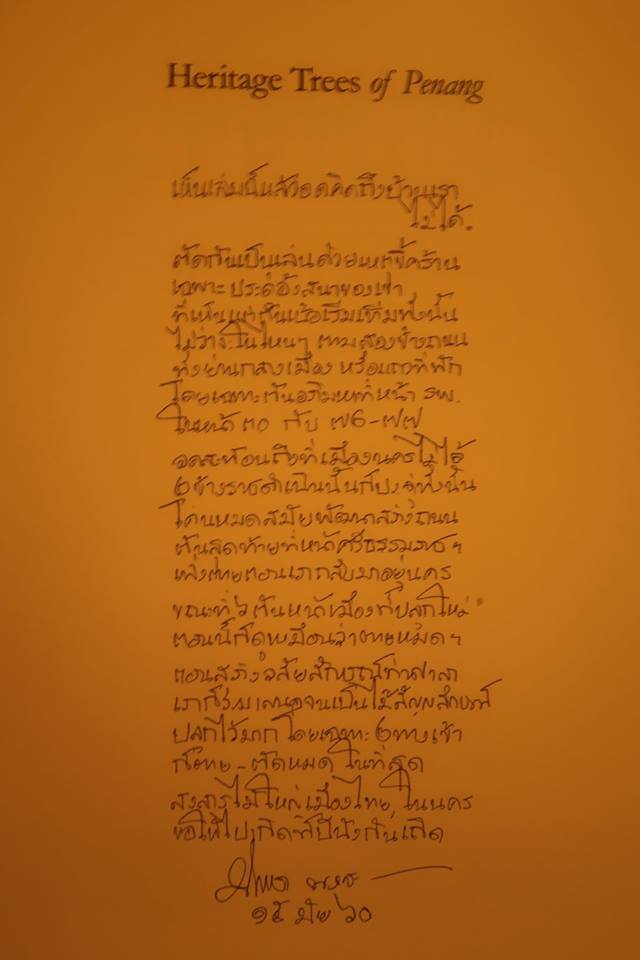 Heritage Trees of Penang
เห็นเล่มนี้แล้วอดคิดถึงบ้านเรา
ไม่ได้.
ตัดกันเป็นเล่น ด้วยเหตุขี้คร้าน
เฉพาะ ประดู่อังสนาของเขา
ที่เห็นแต่ต้นเบ้อเริ่มเทิ่มทั้งนั้น
ไม่ว่าจะในไหนๆ สองข้างถนน
ทั้งย่านกลางเมือง หรือแถวที่พัก
โดยเฉพาะต้นอภิมหาที่หน้า รพ.
ในหน้า ๓๐ กับ ๗๖-๗๗
สะท้อนถึงที่เมืองนคร
๒ข้างราชดำเนินนั้นก็ ทั้งนั้น
โค่นหมดสมัยพัฒนาสร้างถนน
ต้นสุดท้ายที่หน้าศรีธรรมราชฯ
เพิ่งตายตอนเรากลับมาอยู่นคร
ขณะที่ ๖ ต้นหน้าเมืองที่ปลูกใหม่
ตอนนี้ก็ดูเหมือนว่าตายหมดฯ
ตอนสร้างวลัยลักษณ์ท่าศาลา
เราก็ร่วมเสนอจนเป็นไม้สัญลักษณ์
ปลูกไว้มาก โดยเฉพาะ ๒ทางเข้า
ก็ตาย-ตัดหมด ในที่สุด
สงสารไม้ใหญ่เมืองไทย ในนคร
ขอให้ไปเกิดที่ปีนังกันเถิด
๑๕ มิย ๖๐